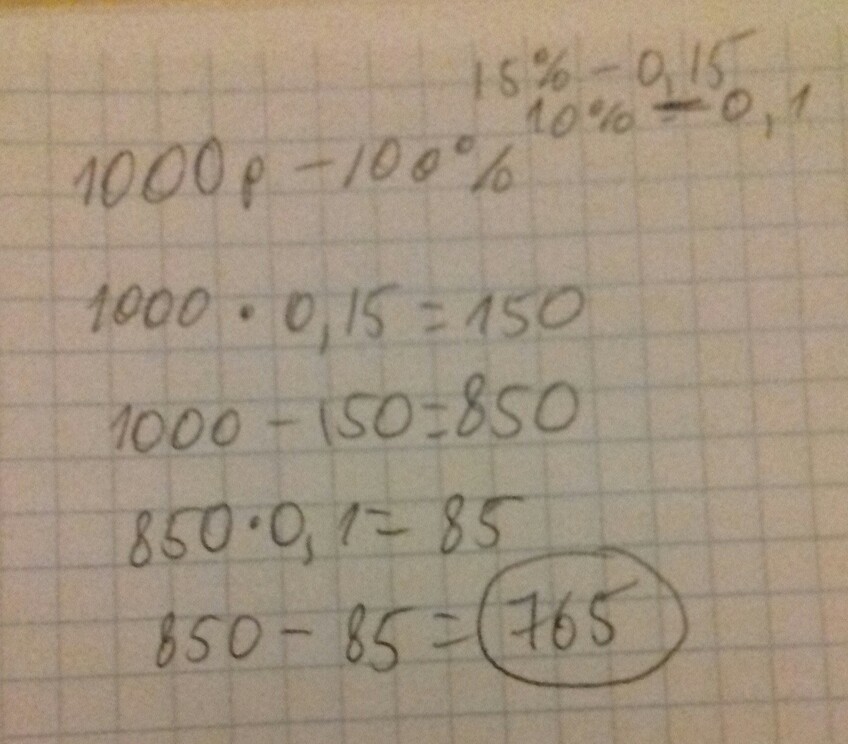 15% - 0,15
10% - 0,1
1000р - 100%
1000 · 0,15 = 150
1000 - 150 = 850
850 · 0,1 = 85
850 - 85 = 765